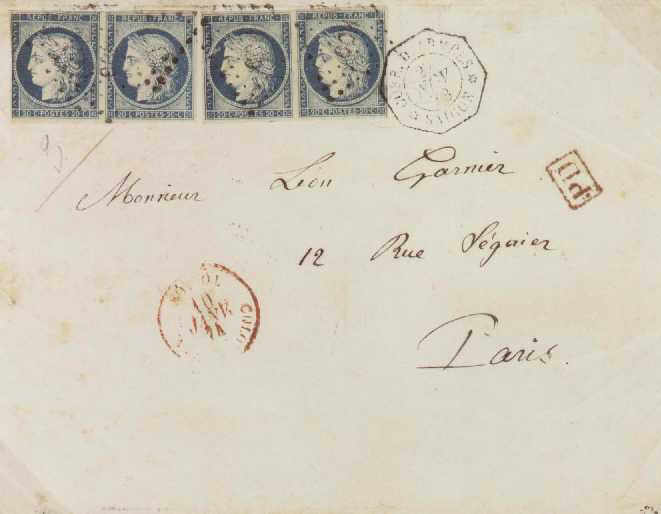 REPUB·FRANC· REPUB·FRANC· REPUB·FRANC· REPUB·FRANC·
20·C·POSTES·20·C· 20·C·POSTES·20·C· 20·C·POSTES·20·C· 20·C·POSTES·20·C·
CORR. D. ARMÉES
SAIGON
PD
Monsieur Léon Garnier
12 Rue Séguier
Paris.
10
JANV
74